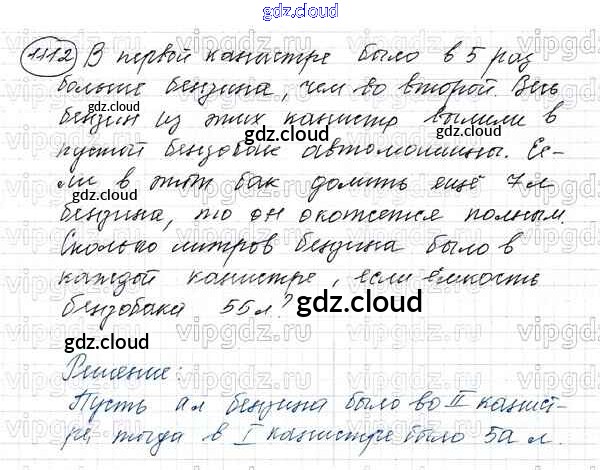 gdz.cloud
1112 В первой канистре было в 5 раз
больше бензина, чем во второй. Весь
бензин из этих канистр вылили в
пустой бензобак автомашины. Ес-
ли в этот бак долить ещё 7 л
бензина, то он окажется полным.
Сколько литров бензина было в
каждой канистре, если ёмкость
бензобака 55 л?
Решение:
Пусть a л бензина было во II канист-
ре, тогда в I канистре было 5a л.
gdz.cloud
gdz.cloud
gdz.cloud
gdz.cloud
gdz.cloud
gdz.cloud
gdz.cloud